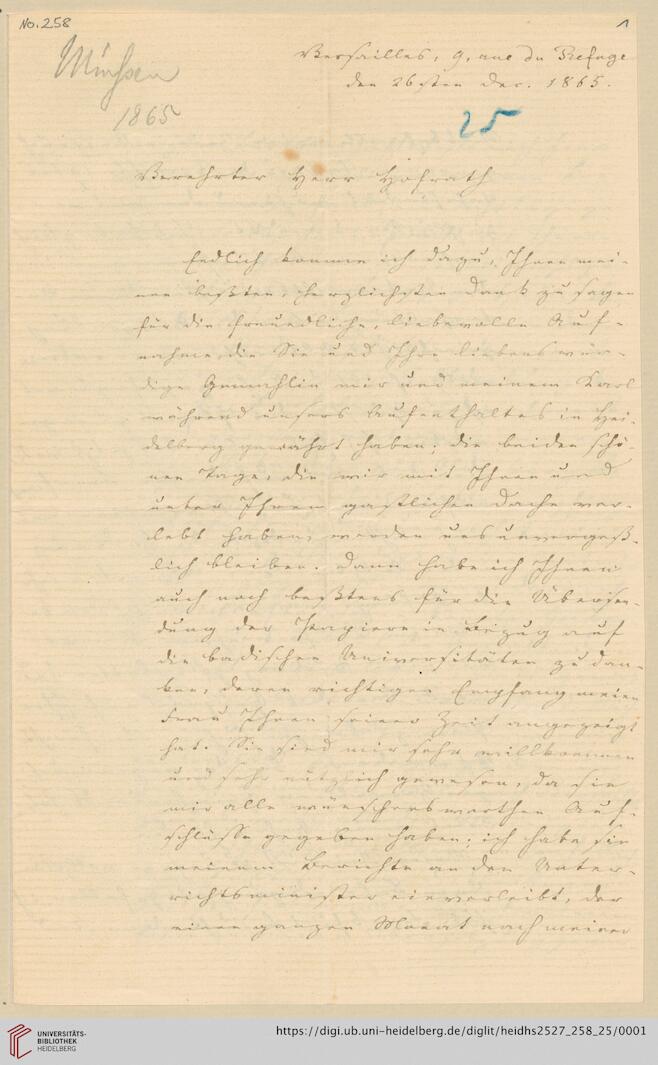 No. 258
1
1865
Versailles, 9, rue du Refuge
den 26sten Dec. 1865.
25
Verehrter Herr Hofrath
Endlich komme ich dazu, Ihnen mei-
nen beßten, herzlichsten Dank zu sagen
für die freundliche, liebevolle Auf-
nahme, die Sie und Ihre liebenswür-
dige Gemahlin mir und meinem Karl
während unsers Aufenthaltes in Hei-
delberg gewährt haben; die beiden schö-
nen Tage, die wir mit Ihnen und
unter Ihrem gastlichen Dache ver-
lebt haben, werden uns unvergeß-
lich bleiben. Dann habe ich Ihnen
auch noch beßtens für die Übersen-
dung der Papiere in Bezug auf
die badischen Universitäten zu dan-
ken, deren richtigen Empfang meine
Frau Ihnen seiner Zeit angezeigt
hat. Sie sind mir sehr willkommen
und sehr nützlich gewesen, da sie
mir alle wünschenswerthen Auf-
schlüsse gegeben haben; ich habe sie
meinem Berichte an den Unter-
richtsminister einverleibt, der
einen ganzen Monat nach meiner
UNIVERSITÄTS-
BIBLIOTHEK
HEIDELBERG
https://digi.ub.uni-heidelberg.de/diglit/heidhs2527_258_25/0001